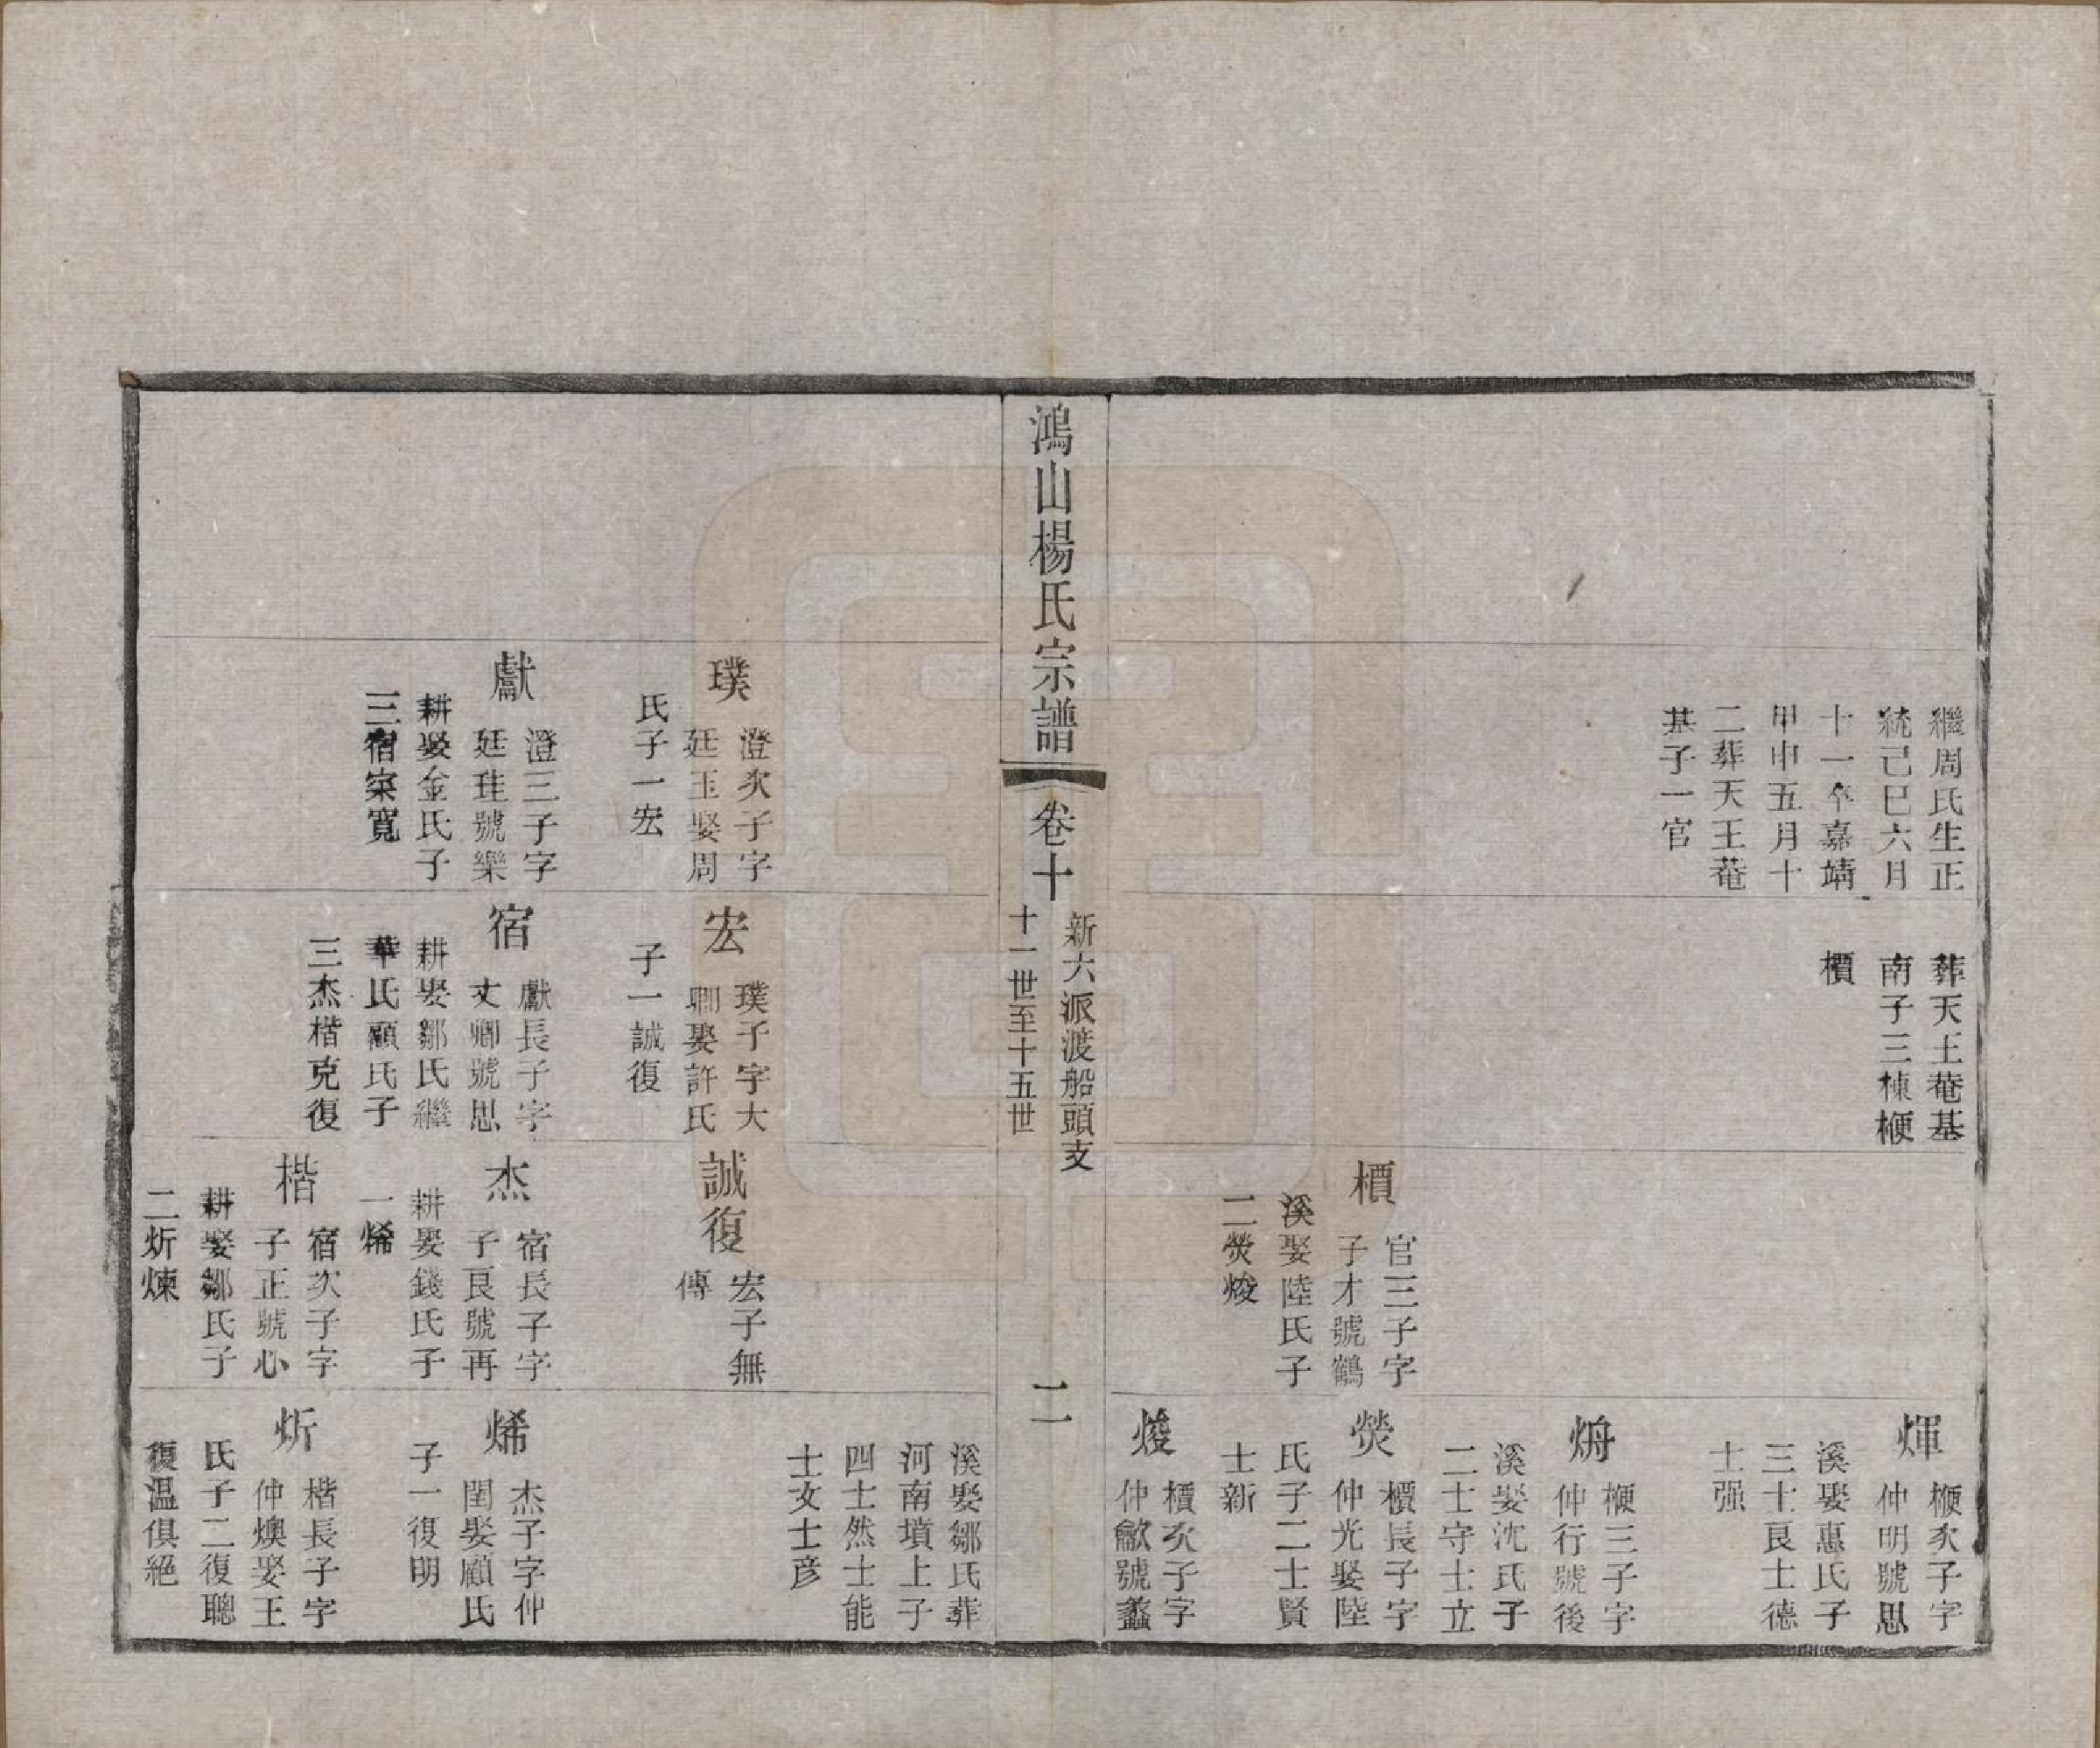 繼周氏生正
統己巳六月
十一卒嘉靖
甲申五月十
二葬天王菴
基子一官
葬天王菴基
南子三棟楩
檟
檟
官三子字
子才號鶴
溪娶陸氏子
二熒焌
煇
楩次子字
仲明號思
溪娶惠氏子
三士良士德
士强
楩三子字
仲行號後
溪娶沈氏子
二士守士立
熒
檟長子字
仲光娶陸
氏子二士賢
士新
焌
檟次子字
仲歈號蠡
鴻山楊氏宗譜
卷十
新六派渡船頭支
十一世至十五世
二
璞
澄次子字
廷玉娶周
氏子一宏
獻
澄三子字
廷珪號樂
耕娶金氏子
三宿寀寬
宏
璞子字大
卿娶許氏
子一誠復
宿
獻長子字
文卿號思
耕娶鄒氏繼
華氏顧氏子
三杰楷克復
誠復
宏子無
傳
杰
宿長子字
子良號再
耕娶錢氏子
一烯
楷
宿次子字
子正號心
耕娶鄒氏子
二炘煉
溪娶鄒氏葬
河南墳上子
四士然士能
士文士彥
烯
杰子字仲
閏娶顧氏
子一復明
炘
楷長子字
仲燠娶王
氏子二復聰
復温俱絕